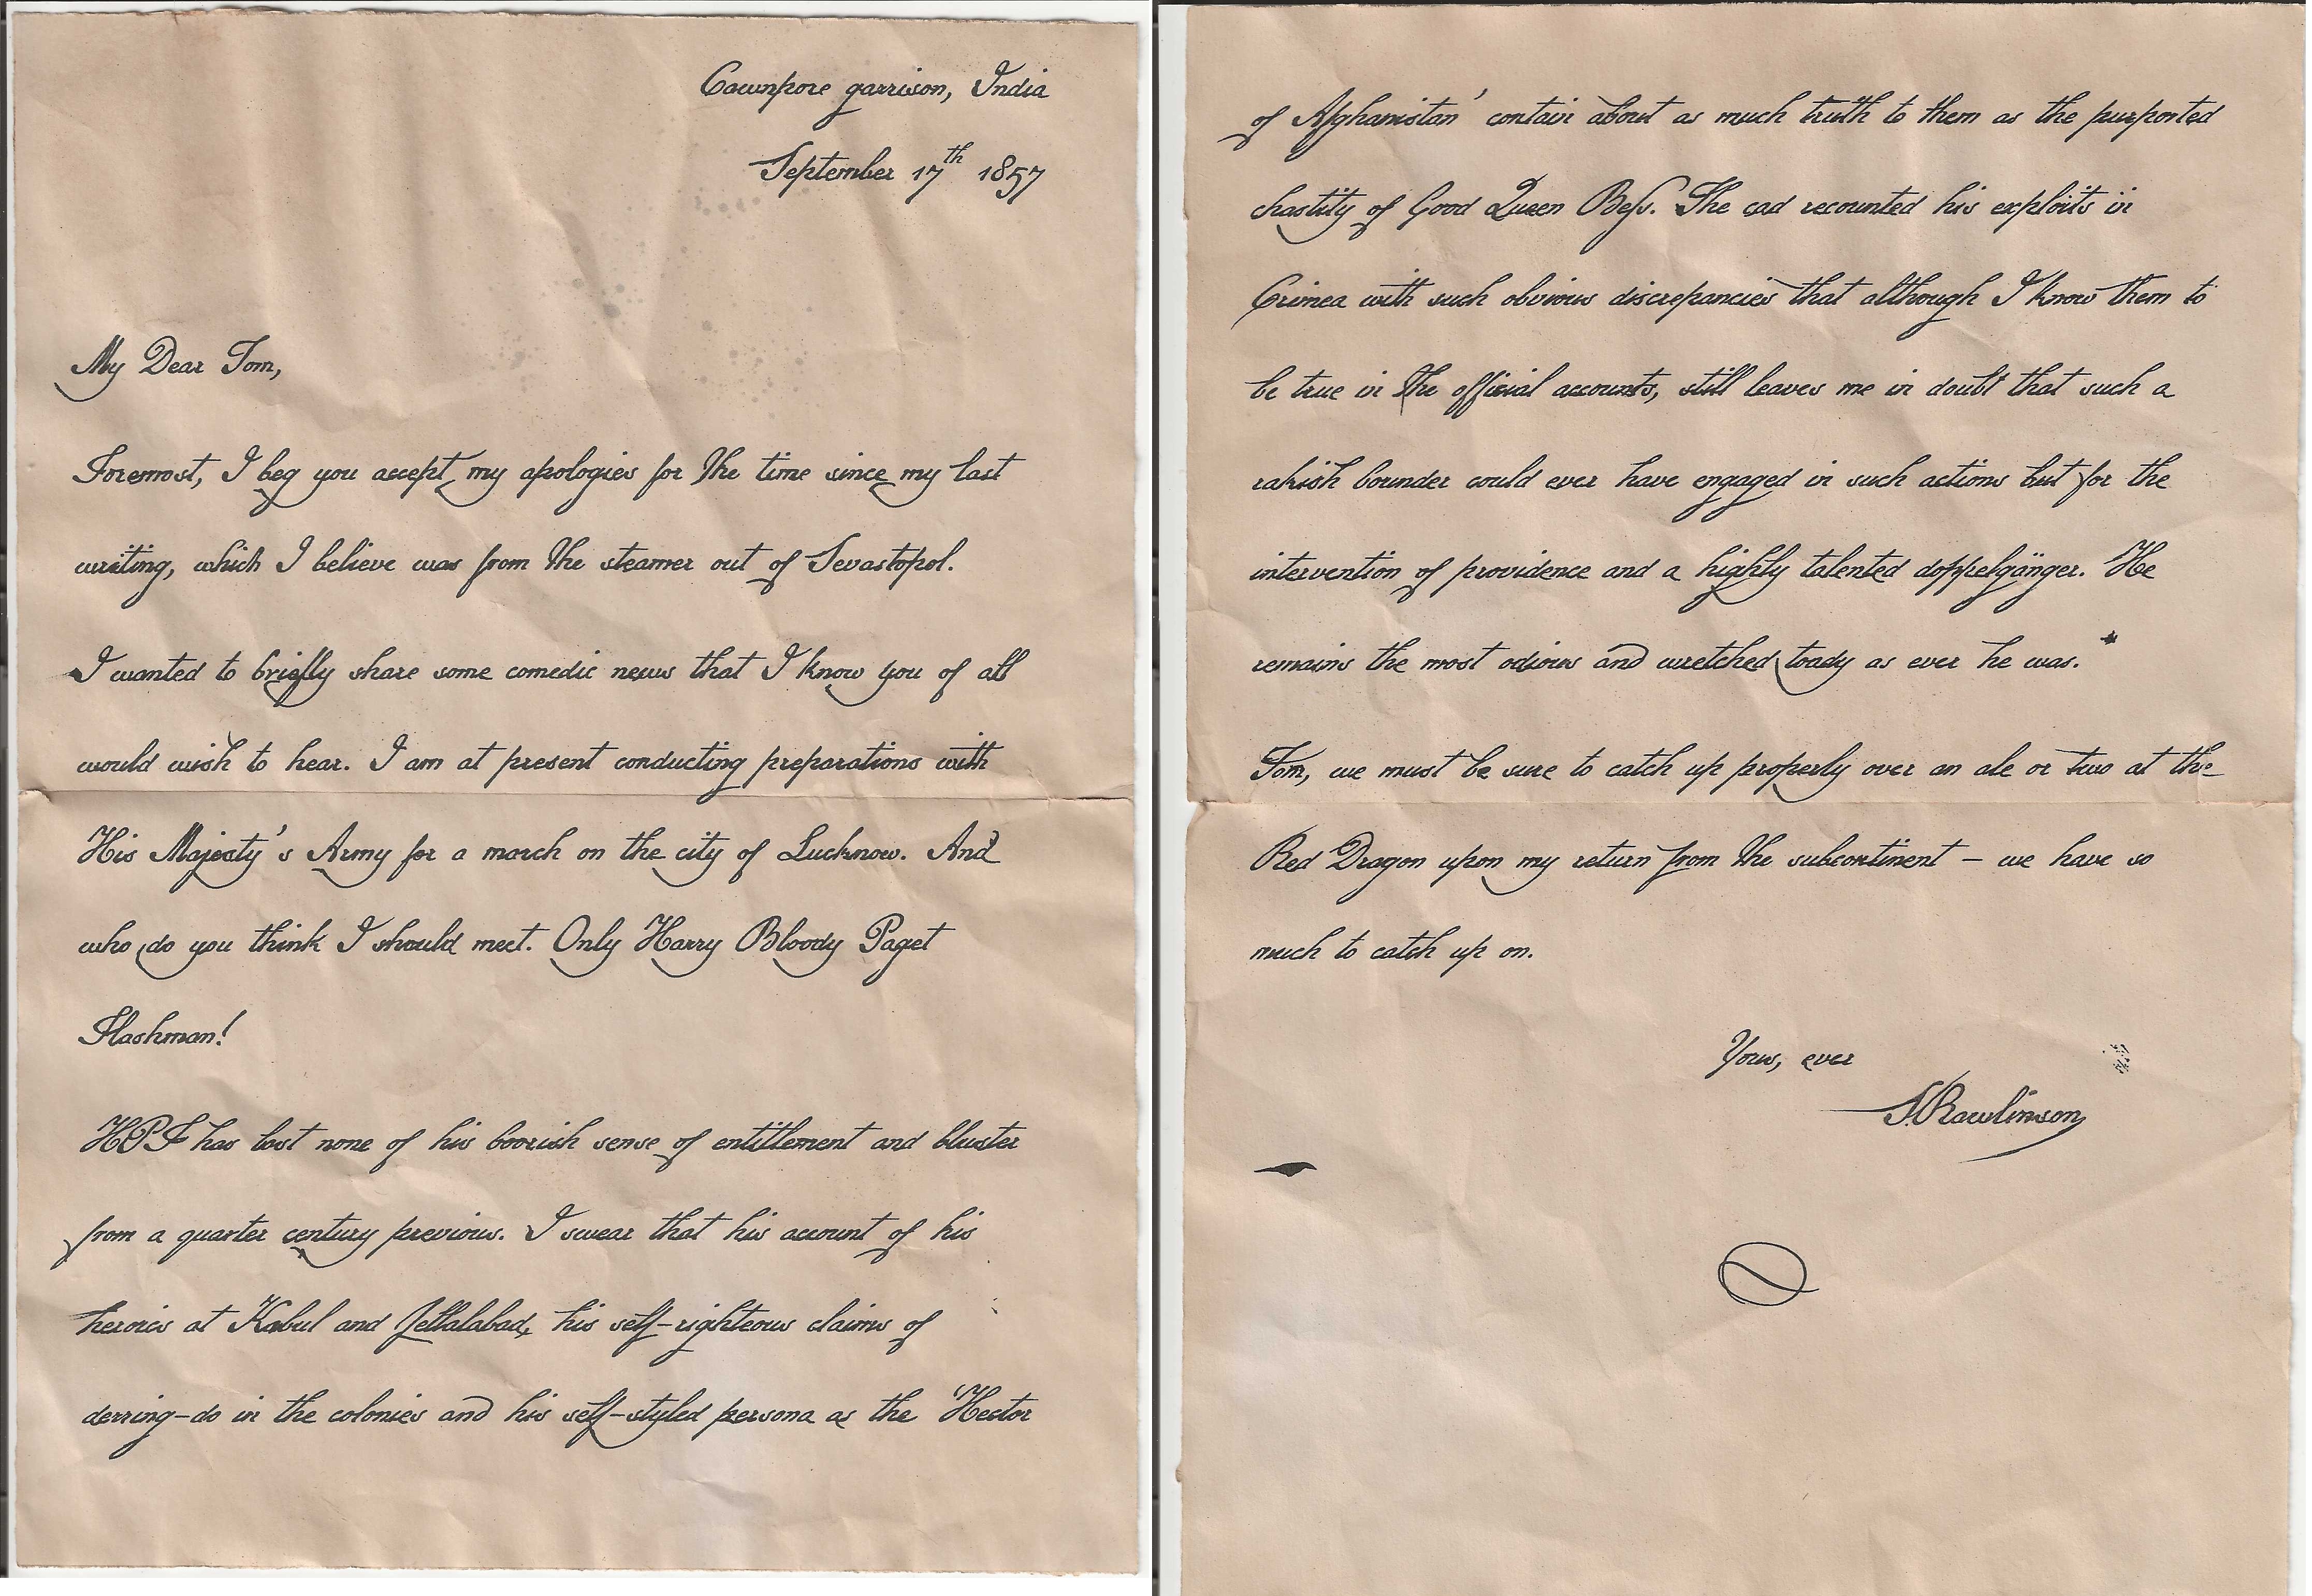 Cawnpore garrison, India
September 17th 1857
My Dear Tom,
Foremost, I beg you accept my apologies for the time since my last
writing, which I believe was from the steamer out of Sevastopol.
I wanted to briefly share some comedic news that I know you of all
would wish to hear. I am at present conducting preparations with
His Majesty's Army for a march on the city of Lucknow. And
who do you think I should meet. Only Harry Bloody Paget
Flashman!
HPF has lost none of his boorish sense of entitlement and bluster
from a quarter century previous. I swear that his account of his
heroics at Kabul and Jellalabad, his self-righteous claims of
derring-do in the colonies and his self-styled persona as the 'Hector
of Afghanistan' contain about as much truth to them as the purported
chastity of Good Queen Beſs. The cad recounted his exploits in
Crimea with such obvious discrepancies that although I know them to
be true in the official accounts, still leaves me in doubt that such a
rakish bounder could ever have engaged in such actions but for the
intervention of providence and a highly talented doppelgänger. He
remains the most odious and wretched toady as ever he was.
Tom, we must be sure to catch up properly over an ale or two at the
Red Dragon upon my return from the subcontinent – we have so
much to catch up on.
Yours, ever
S. Rawlinson